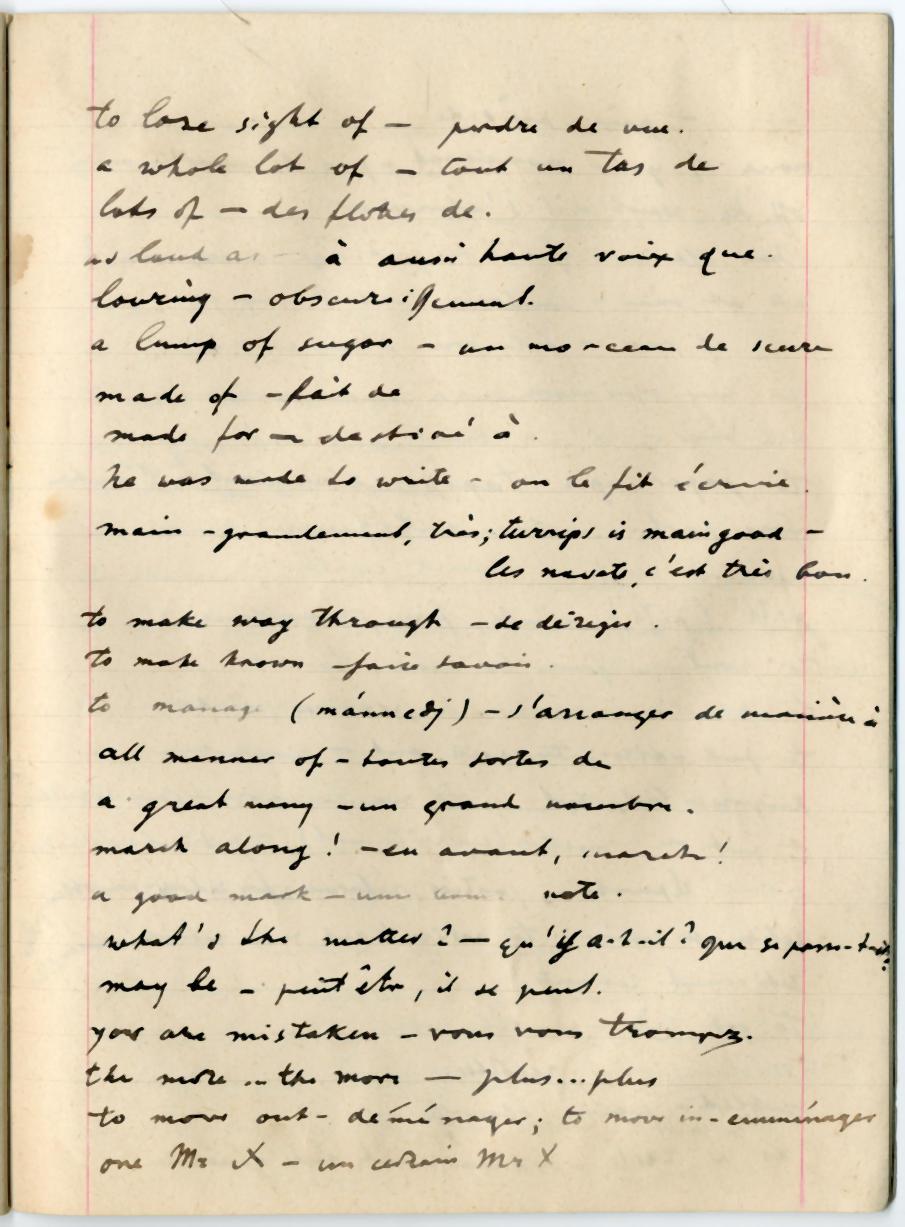 to lose sight of — perdre de vue.
a whole lot of — tout un tas de
lots of — des flottes de.
as loud as — à aussi haute voix que.
louring — obscurcissement.
a lump of sugar — un morceau de sucre
made of — fait de
made for — destiné à.
he was made to write — on le fit écrire.
main — grandement, très; turnips is main good —
les navets, c'est très bon.
to make way through — se diriger.
to make known — faire savoir.
to manage (mánnedj) — s'arranger de manière à
all manner of — toutes sortes de
a great many — un grand nombre.
march along! — en avant, march!
a good mark — une bonne note.
what's the matter? — qu'y a-t-il? que se passe-t-il?
may be — peut être, il se peut.
you are mistaken — vous vous trompez.
the more ... the more — plus...plus
to move out — déménager; to move in — emménager
one Mr X — un certain Mr X